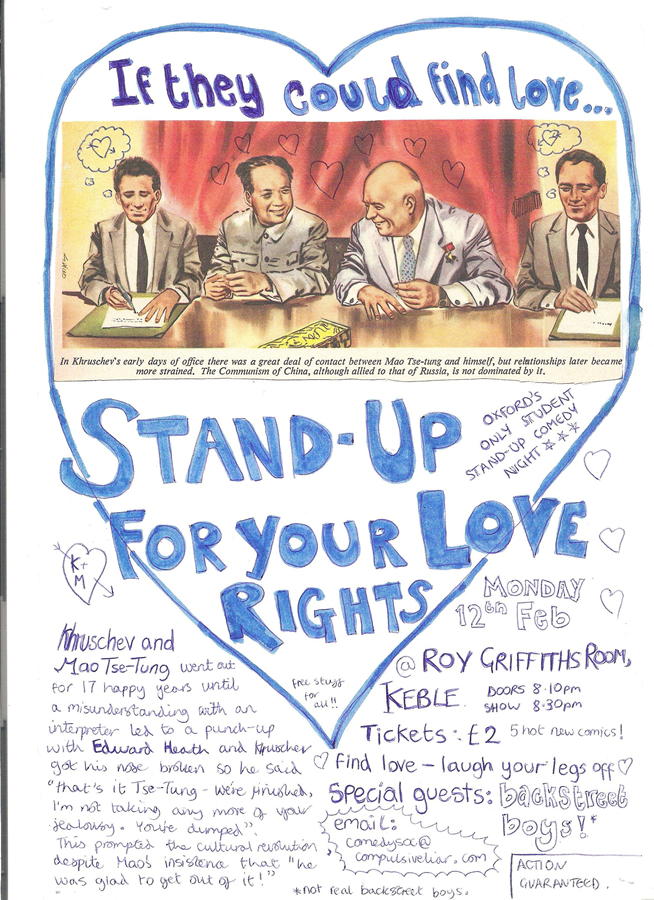 If they could find love...
In Khruschev's early days of office there was a great deal of contact between Mao Tse-tung and himself, but relationships later became
more strained. The Communism of China, although allied to that of Russia, is not dominated by it.
OXFORD'S
ONLY STUDENT
STAND-UP COMEDY
NIGHT
STAND-UP
FOR YOUR LOVE
RIGHTS
K+
M
MONDAY
12th Feb
@ ROY GRIFFITHS ROOM,
KEBLE
DOORS 8.10pm
SHOW 8.30pm
Tickets: £2 5 hot new comics!
find love - laugh your legs off
Special guests: backstreet
boys!*
email:
comedysoc@
compulsiveliar.com
ACTION
GUARANTEED.
free stuff
for
all!!
Khruschev and
Mao Tse-Tung went out
for 17 happy years until
a misunderstanding with an
interpreter led to a punch-up
with Edward Heath and Khruschev
got his nose broken so he said
"that's it Tse-Tung - we're finished,
I'm not taking any more of your
jealousy. You're dumped".
This prompted the cultural revolution,
despite Mao's insistence that "he
was glad to get out of it!"
*not real backstreet boys.